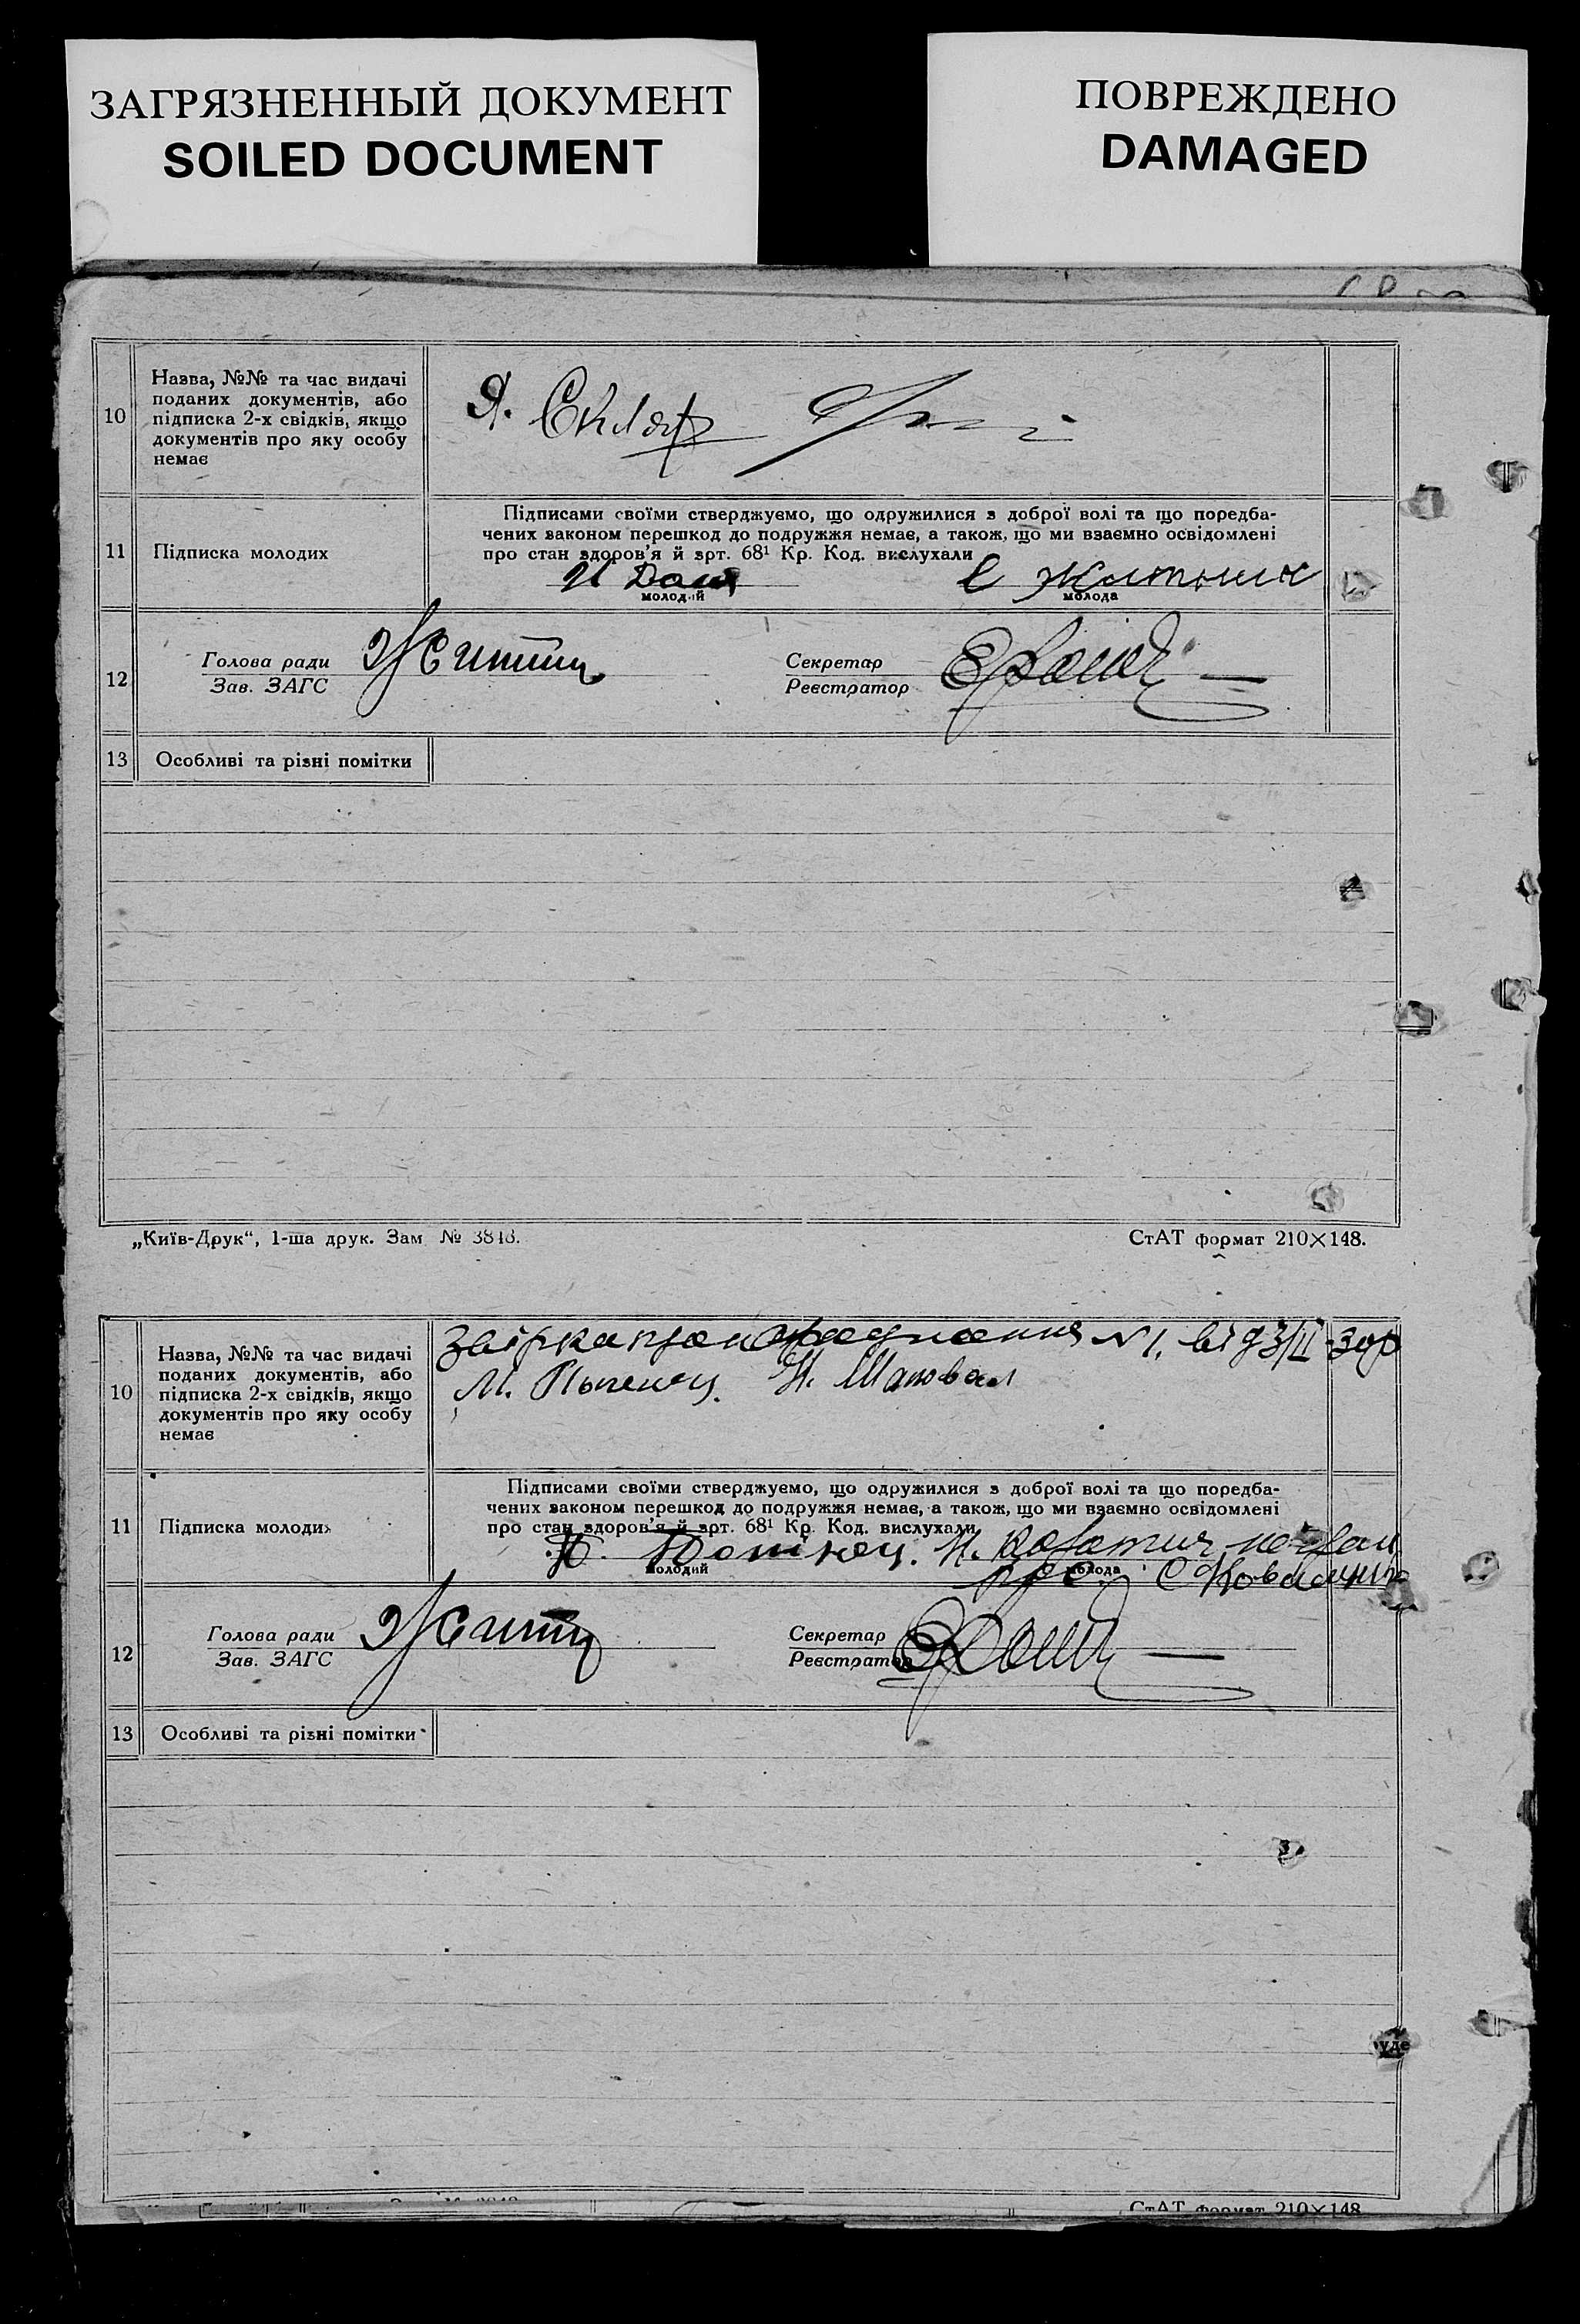 ЗАГРЯЗНЕННЫЙ ДОКУМЕНТ
SOILED DOCUMENT
ПОВРЕЖДЕНО
DAMAGED
10
Назва, №№ та час видачі
поданих документів, або
підписка 2-х свідків, якщо
документів про яку особу
немає
Я. Скляр
11
Підписка молодих
Підписами своїми стверджуємо, що одружилися з доброї волі та що поредба-
чених законом перешкод до подружжя немає, а також, що ми взаємно освідомлені
про стан здоров’я й арт. 68¹ Кр. Код. вислухали
молодий
молода
12
Голова ради
Зав. ЗАГС
Секретар
Реєстратор
13
Особливі та різні помітки
„Київ-Друк“, 1-ша друк. Зам № 3848.
СтАТ формат 210×148.
10
Назва, №№ та час видачі
поданих документів, або
підписка 2-х свідків, якщо
документів про яку особу
немає
№1. від 3/II 30р
М. Н. Шаповал
11
Підписка молодих
Підписами своїми стверджуємо, що одружилися з доброї волі та що поредба-
чених законом перешкод до подружжя немає, а також, що ми взаємно освідомлені
про стан здоров’я й арт. 68¹ Кр. Код. вислухали
молодий
молода
12
Голова ради
Зав. ЗАГС
Секретар
Реєстратор
13
Особливі та різні помітки
СтАТ формат 210×148